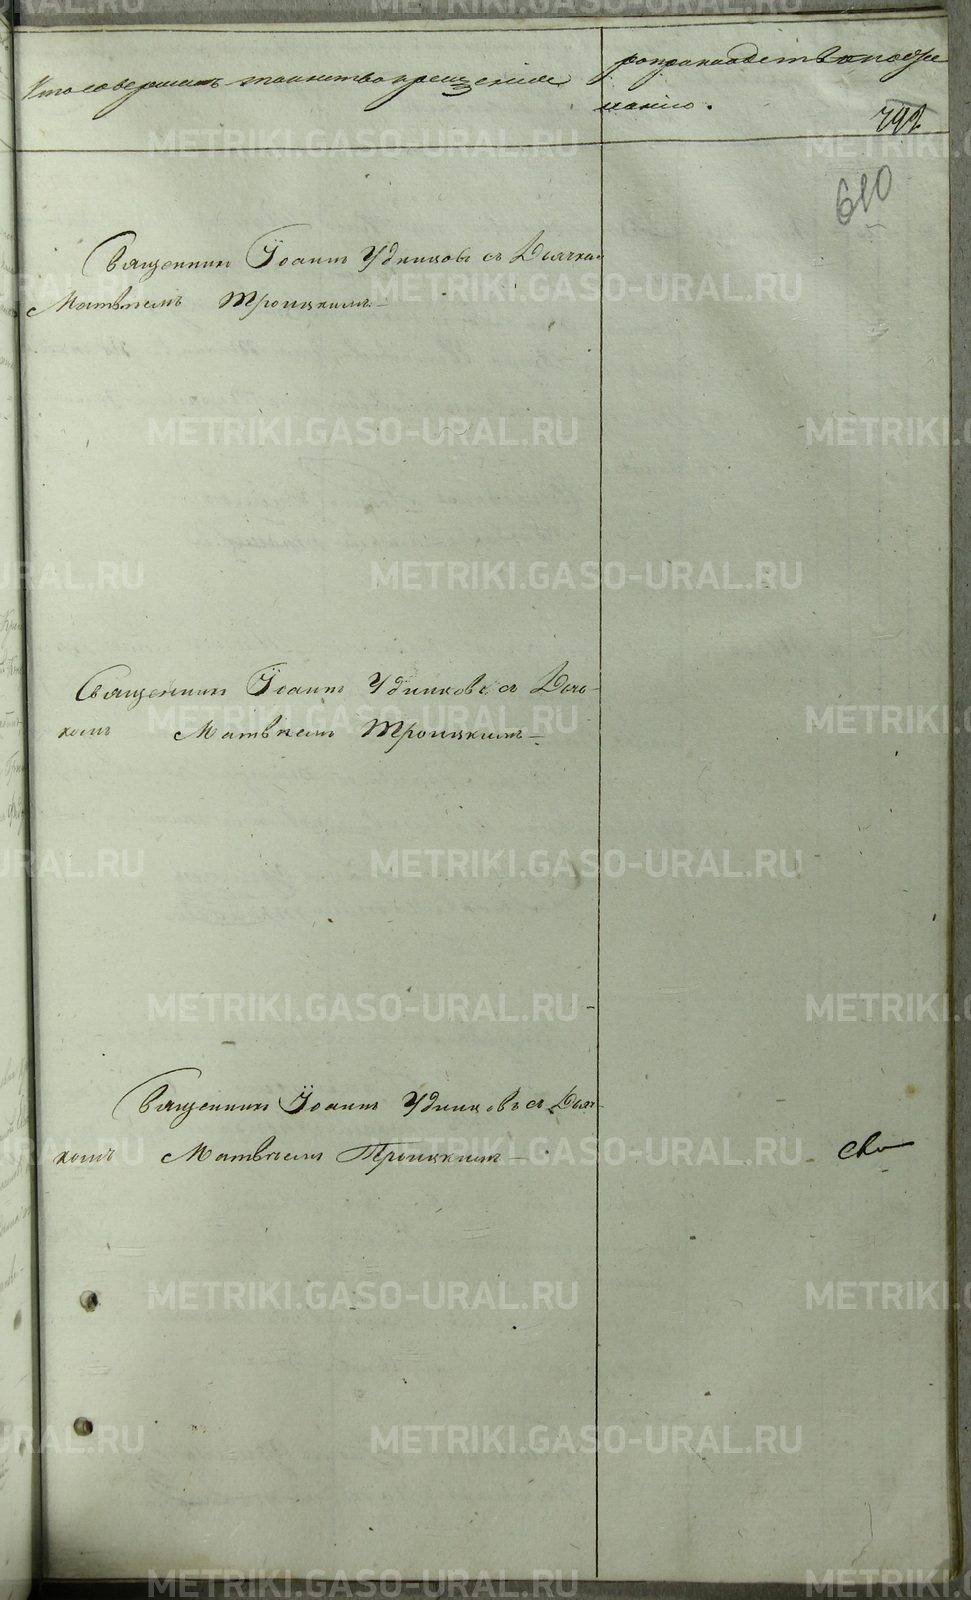 Кто совершалъ таинство крещенія
рукоприкладство по же
ланію.
792
610
Священникъ Іоаннъ Удинцовъ съ Дьячко
Матвѣемъ Троицкимъ
Священникъ Іоаннъ Удинцовъ съ Дьяч
комъ Матвѣемъ Троицкимъ
Священникъ Іоаннъ Удинцовъ съ Дьяч
комъ Матвѣемъ Троицкимъ
METRIKI.GASO-URAL.RU